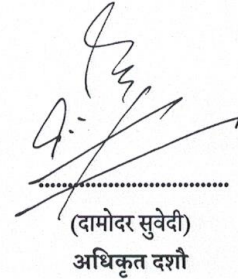 (दामोदर सुवेदी)
अधिकृत दशौ